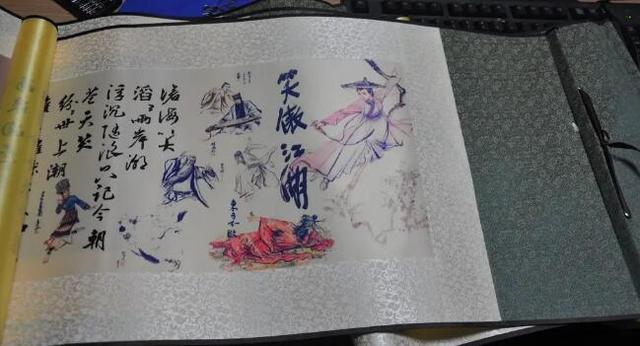 笑傲江湖
東方不敗
滄海笑
滔〻兩岸潮
浮沉隨浪只記今朝
蒼天笑
紛〻世上潮